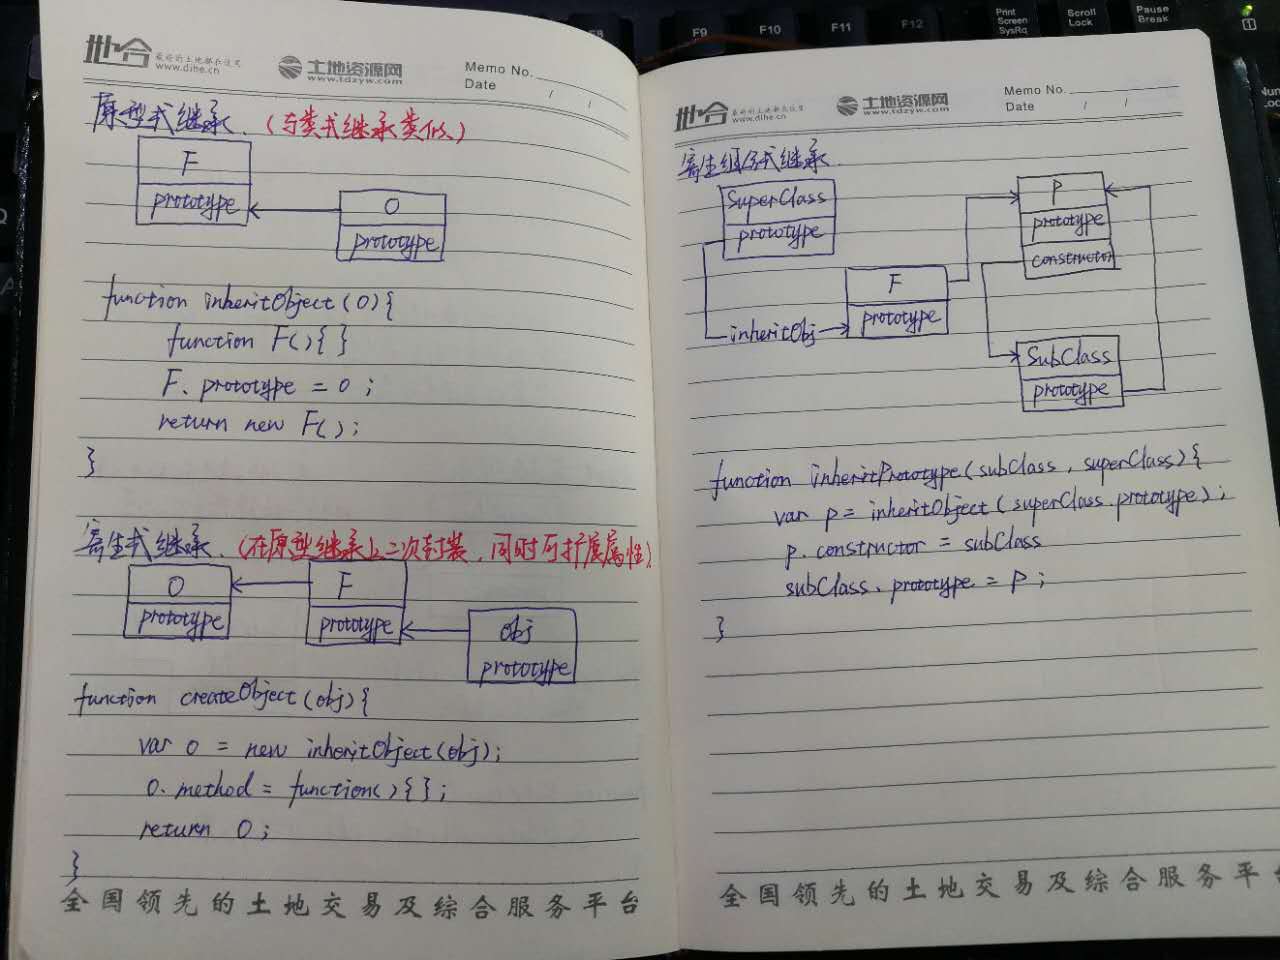 地合 最好的土地都在这里
www.dihe.cn
土地资源网
www.tdzyw.com
Memo No.
Date / /
原型式继承. (与类式继承类似)
F
prototype
O
prototype
function inheritObject(O){
function F(){ }
F. prototype = O ;
return new F();
}
寄生式继承. (在原型继承上二次封装, 同时可扩展属性)
O
prototype
F
prototype
obj
prototype
function createObject(obj){
var o = new inheritObject(obj);
o. method = function(){ };
return o;
}
全国领先的土地交易及综合服务平台
地合 最好的土地都在这里
www.dihe.cn
土地资源网
www.tdzyw.com
Memo No.
Date / /
寄生组合式继承.
SuperClass
prototype
P
prototype
constructor
F
prototype
inheritObj
SubClass
prototype
function inheritPrototype(subClass, superClass){
var p = inheritObject(superClass.prototype);
p. constructor = subClass
subClass. prototype = p ;
}
全国领先的土地交易及综合服务平台
F8
F9
F10
F11
F12
Print
Screen
SysRq
Scroll
Lock
Pause
Break